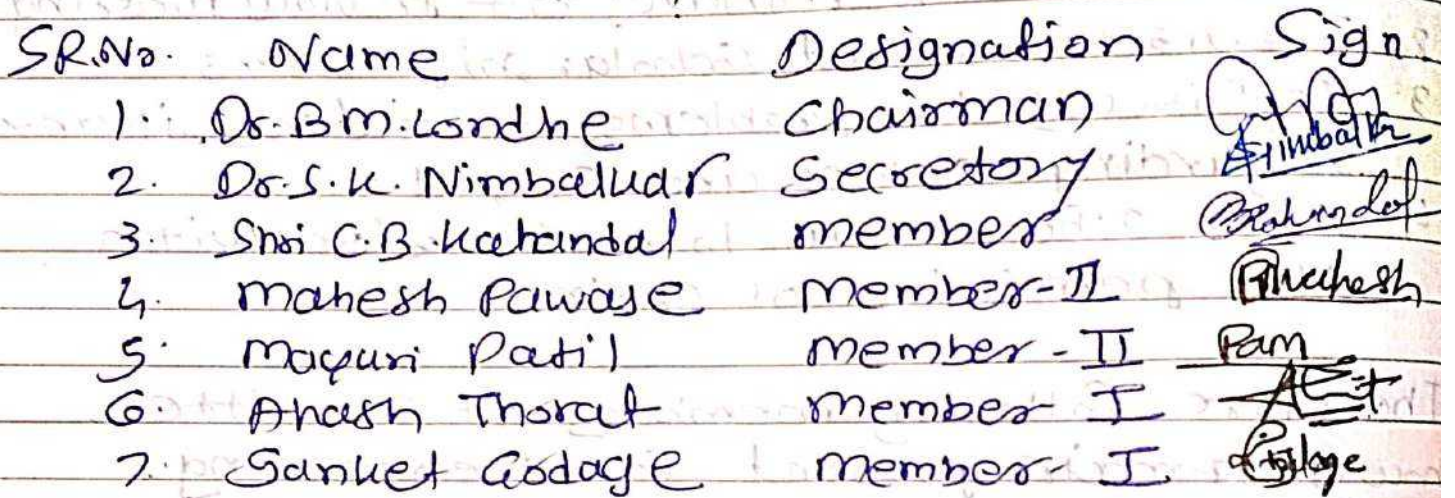 SR.No. Name Designation Sign
1. Dr. B.M. Londhe Chairman
2. Dr. S.K. Nimbalkar Secretory
3. Shri C.B. Kahandal member
4. Mahesh Pawase Member-II
5. Mayuri Patil Member-II Pam
6. Akash Thorat Member-I
7. Sanket Godage Member-I